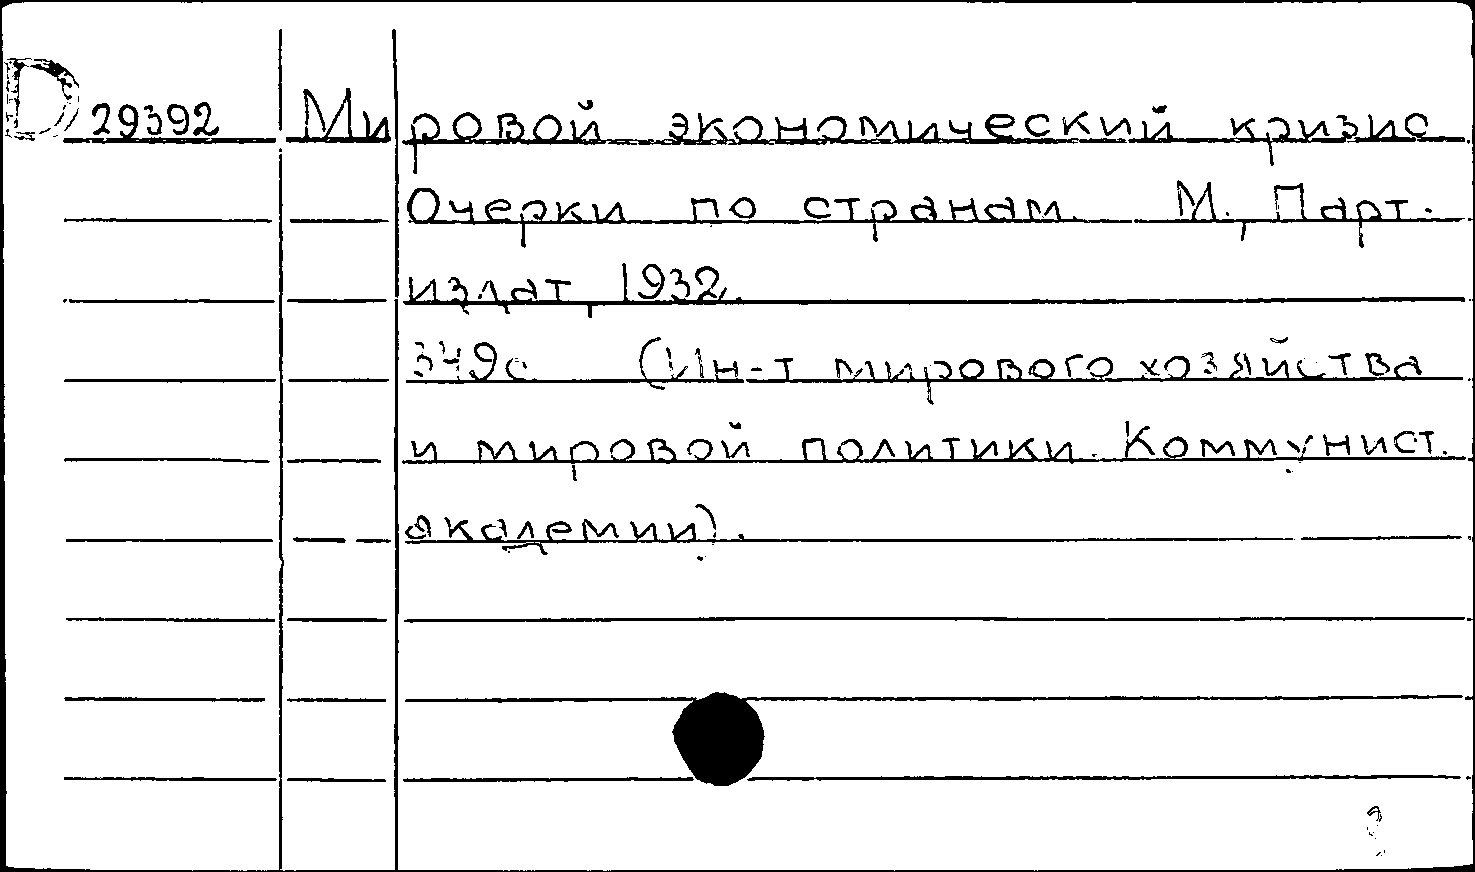 D 29392 Мировой экономический кризис
Очерки по странам. М., Парт.
издат, 1932.
349с (Ин-т мирового хозяйства
и мировой политики. Коммунист.
академии).